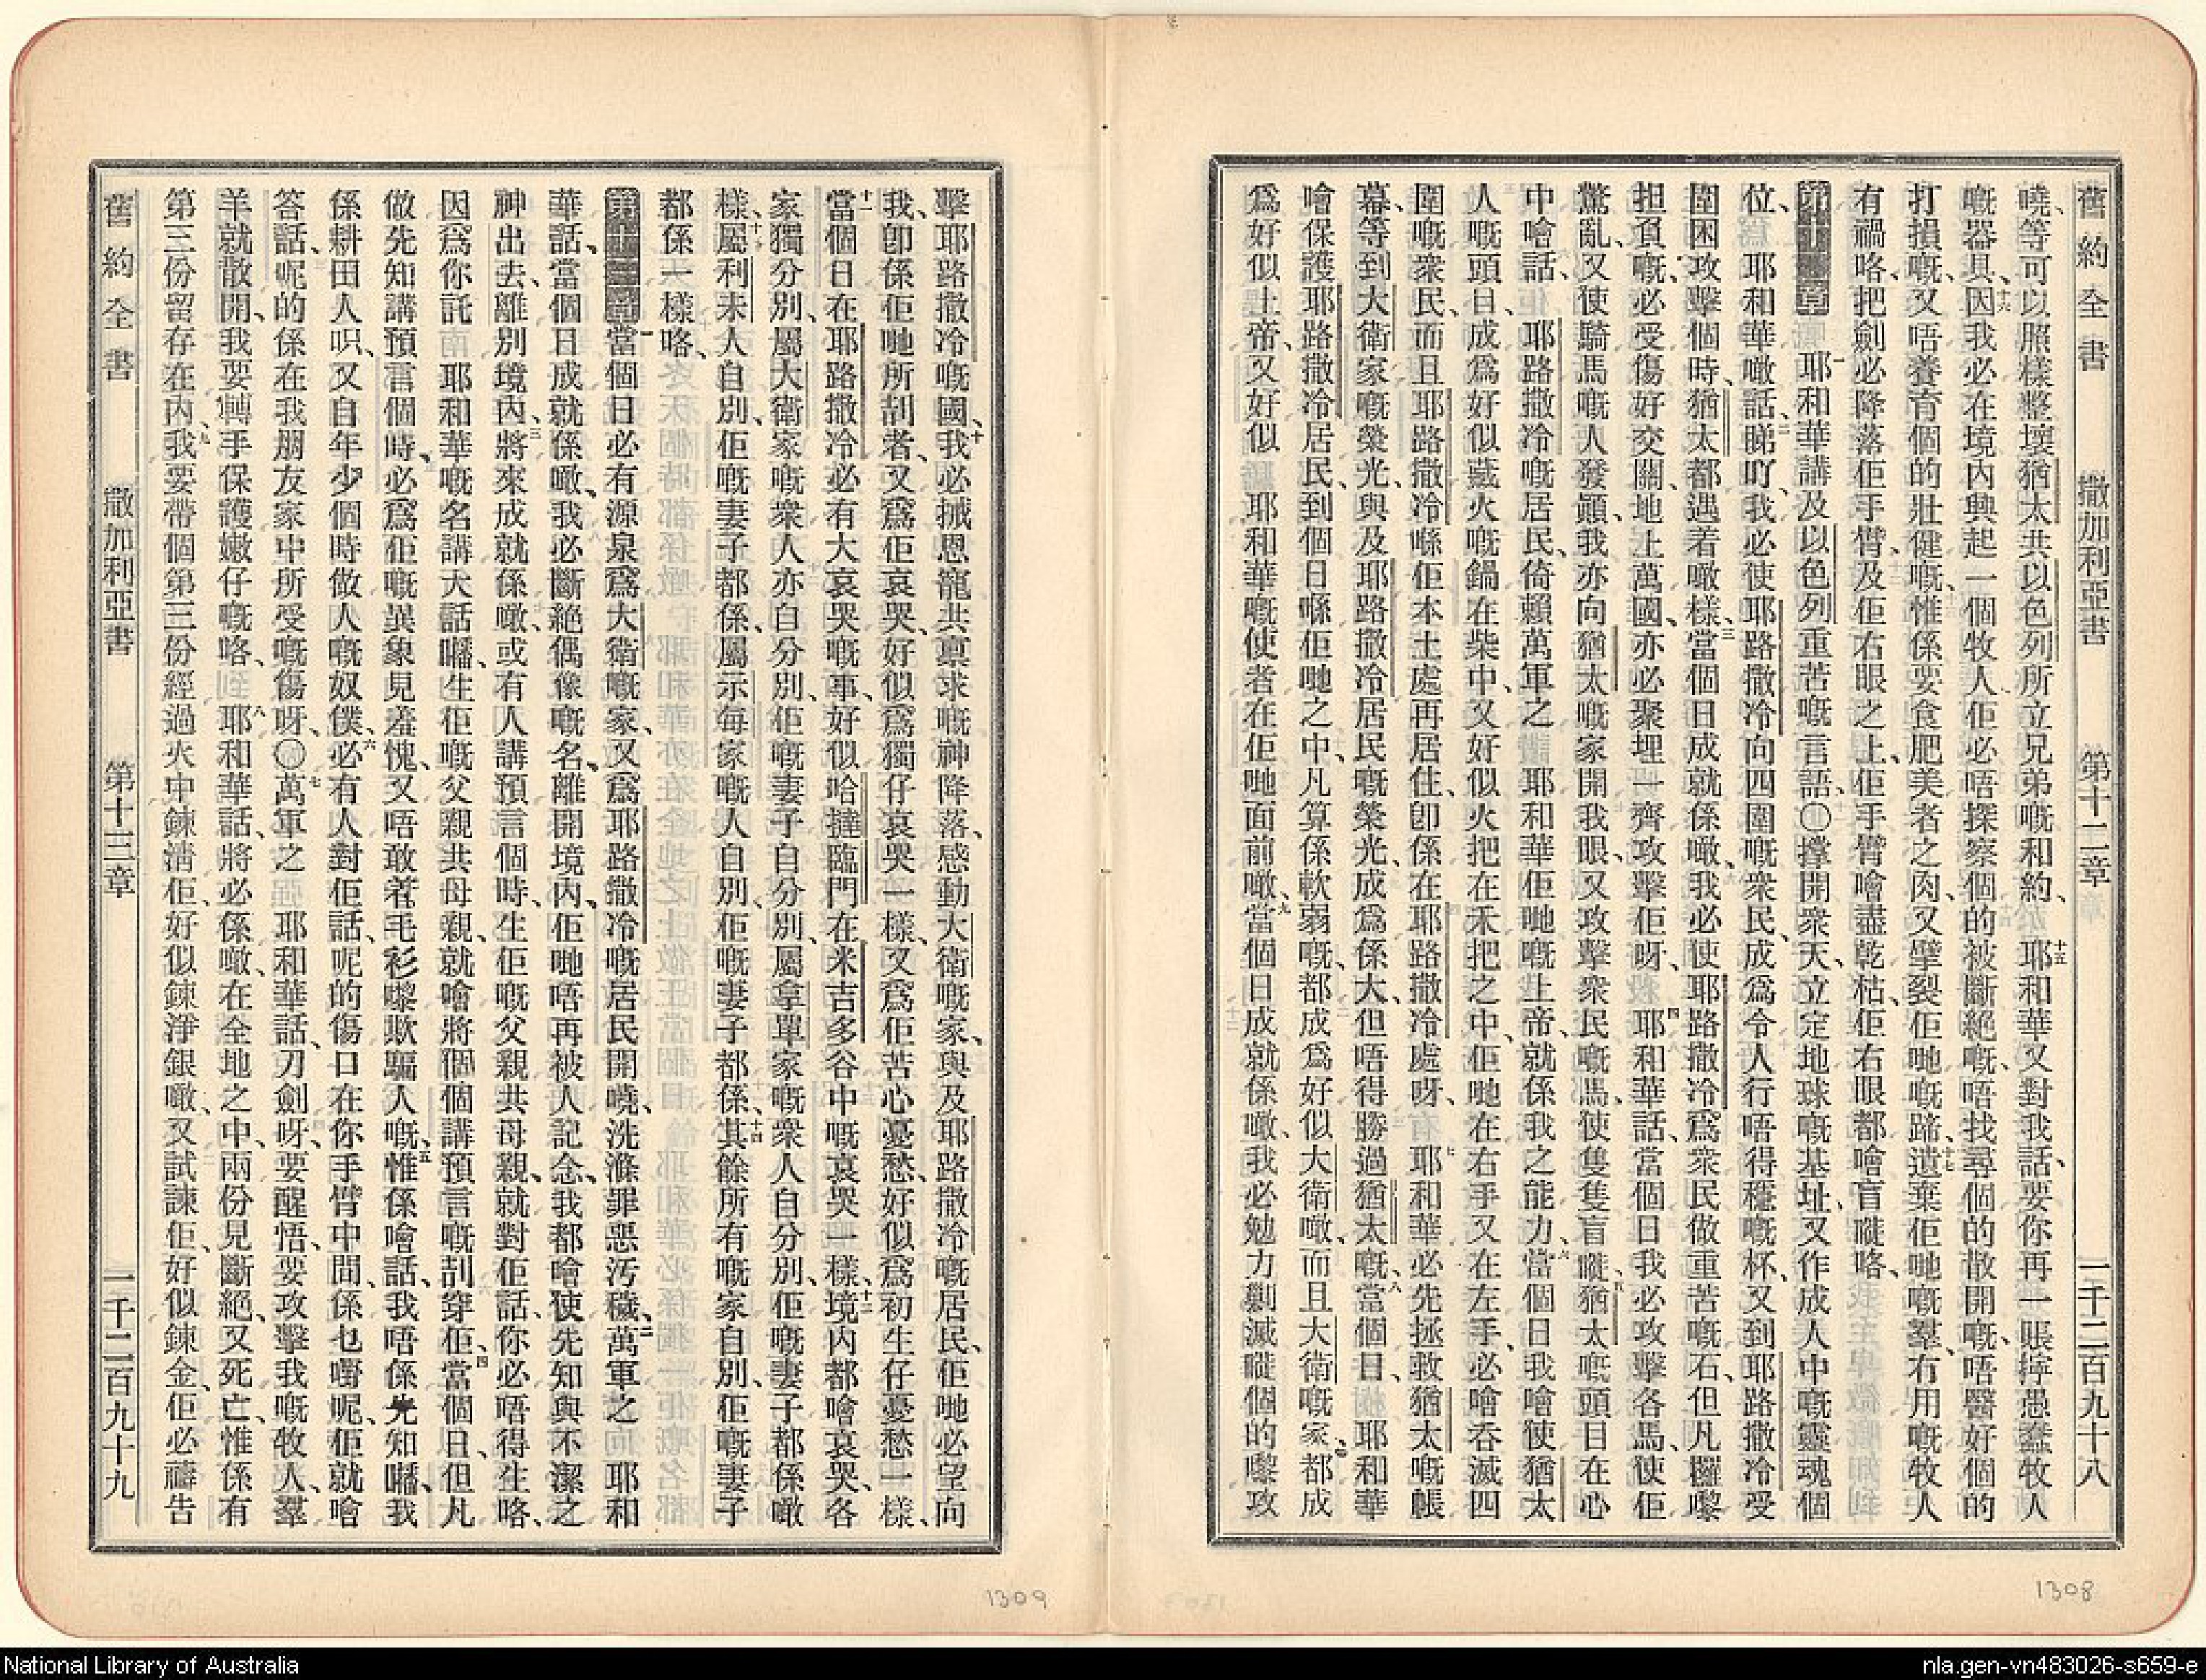 舊約全書 撒加利亞書 第十二章 一千二百九十八
曉、等可以照樣整壞猶太共以色列所立兄弟嘅和約、十五耶和華又對我話、要你再一賬擰愚蠢牧人
嘅器具、十六因我必在境內興起一個牧人、佢必唔探察個的被斷絕嘅、唔找尋個的散開嘅、唔醫好個的
打損嘅、又唔養育個的壯健嘅、惟係要食肥美者之肉、又擘裂佢哋嘅蹄、十七遺棄佢哋嘅羣、冇用嘅牧人
有禍咯、把劍必降落佢手臂、及佢右眼之上、佢手臂噲盡乾枯、佢右眼都噲盲嘥咯、
第十二章 一耶和華講及以色列重苦嘅言語、〇撑開衆天、立定地球嘅基址、又作成人中嘅靈魂個
位、耶和華噉話、二睇吖、我必使耶路撒冷向四圍嘅衆民、成爲令人行唔得穩嘅杯、又到耶路撒冷受
圍困攻擊個時、猶太都遇着噉樣、三當個日成就係噉、我必使耶路撒冷、爲衆民做重苦嘅石、但凡攞嚟
担負嘅、必受傷好交關、地上萬國、亦必聚埋一齊攻擊佢呀、四耶和華話、當個日我必攻擊各馬、使佢
驚亂、又使騎馬嘅人發顚、我亦向猶太嘅家開我眼、又攻擊衆民嘅馬、使隻隻盲嘥、五猶太嘅頭目在心
中噲話、耶路撒冷嘅居民、倚賴萬軍之 耶和華佢哋嘅上帝、就係我之能力、六當個日我噲使猶太
人嘅頭目、成爲好似蓺火嘅鍋在柴中、又好似火把在禾把之中、佢哋在右手又在左手、必噲吞滅四
圍嘅衆民、而且耶路撒冷喺佢本土處再居住、卽係在耶路撒冷處呀、七耶和華必先拯救猶太嘅帳
幕、等到大衛家嘅榮光、與及耶路撒冷居民嘅榮光、成爲係大、但唔得勝過猶太嘅、八當個日、耶和華
噲保護耶路撒冷居民、到個日喺佢哋之中、凡算係軟弱嘅、都成爲好似大衛噉、而且大衛嘅家、都成
爲好似上帝、又好似 耶和華嘅使者在佢哋面前噉、九當個日成就係噉、我必勉力剿滅嘥個的嚟攻
擊耶路撒冷嘅國、十我必捄恩寵共禀求嘅神降落、感動大衛嘅家、與及耶路撒冷嘅居民、佢哋必望向
我、卽係佢哋所刮者、又爲佢哀哭、好似爲獨仔哀哭一樣、又爲佢苦心憂愁、好似爲初生仔憂愁一樣、
十一當個日在耶路撒冷必有大哀哭嘅事、好似哈撻臨門在米吉多谷中嘅哀哭一樣、十二境內都噲哀哭、各
家獨分別、屬大衛家嘅衆人亦自分別、佢嘅妻子自分別、屬拿單家嘅衆人自分別、佢嘅妻子都係噉
樣、十三屬利未人自別、佢嘅妻子都係、屬示每家嘅人自別、佢嘅妻子都係、十四其餘所有嘅家自別、佢嘅妻子
都係一樣咯、
第十三章 一當個日必有源泉、爲大衛嘅家、又爲耶路撒冷嘅居民開嘵、洗滌罪惡汚穢、二萬軍之 耶和
華話、當個日成就係噉、我必斷絕偶像嘅名、離開境內、佢哋唔再被人記念、我都噲使先知與不潔之
神出去、離別境內、三將來成就係噉、或有人講預言個時、生佢嘅父親共母親、就對佢話、你必唔得生咯、
因爲你託 耶和華嘅名講大話𠻺、生佢嘅父親共母親、就噲將個個講預言嘅刮穿佢、四當個日、但凡
做先知講預言個時、必爲佢嘅異象見羞愧、又唔敢着毛衫嚟欺騙人嘅、五惟係噲話、我唔係先知𠻺、我
係耕田人呮、又自年少個時做人嘅奴僕、六必有人對佢話、呢的傷口在你手臂中間、係乜嘢呢、佢就噲
答話、呢的係在我朋友家中所受嘅傷呀、〇七萬軍之 耶和華話、刃劍呀、要醒悟、要攻擊我嘅牧人、羣
羊就散開、我要轉手保護嫩仔嘅咯、八耶和華話、將必係噉、在全地之中、兩份見斷絕、又死亡、惟係有
第三份留存在內、九我要帶個第三份經過火中鍊淸佢、好似鍊淨銀噉、又試諫佢、好似鍊金、佢必禱告
舊約全書 撒加利亞書 第十三章 一千二百九十九
1309
1308
National Library of Australia
nla.gen-vn483026-s659-e